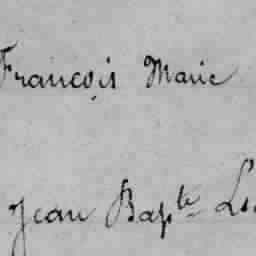 François Marie
Jean Bapte